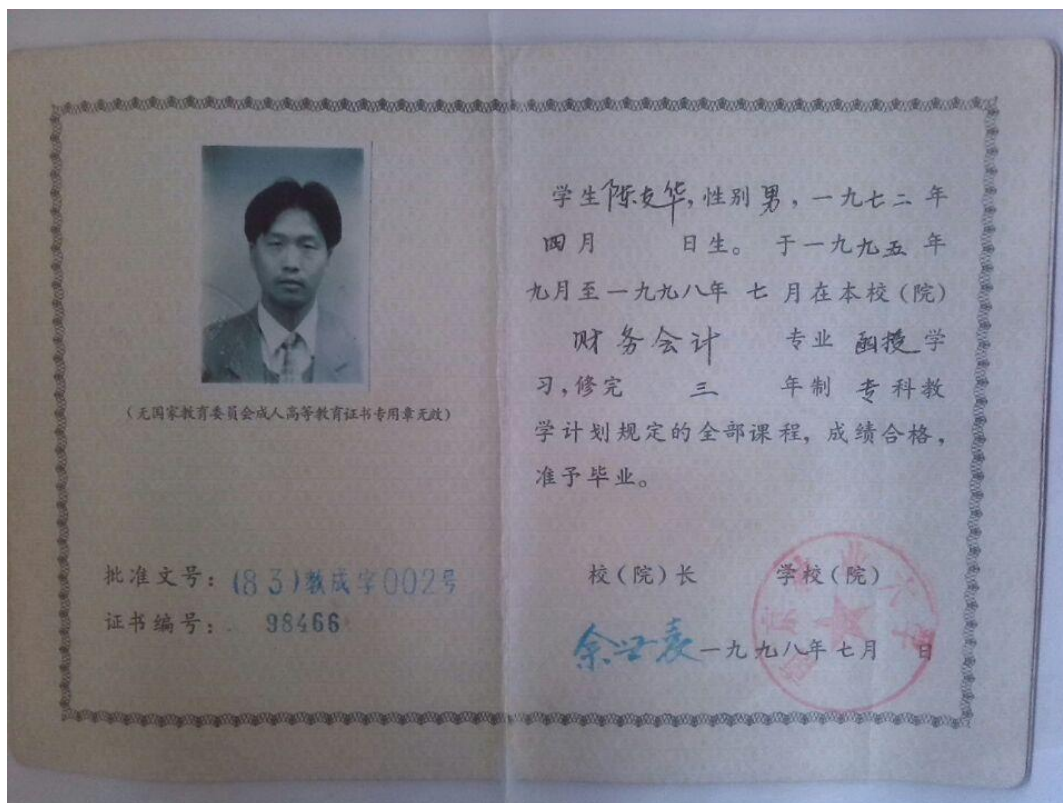 (无国家教育委员会成人高等教育证书专用章无效)
批准文号：(83)教成字002号
证书编号： 98466
学生陈友华,性别男,一九七二年
四月 日生。于一九九五年
九月至一九九八年 七 月在本校(院)
财务会计 专业 函授学
习,修完 三 年制 专科教
学计划规定的全部课程,成绩合格,
准予毕业。
校(院)长 学校(院)
一九九八年七月 日